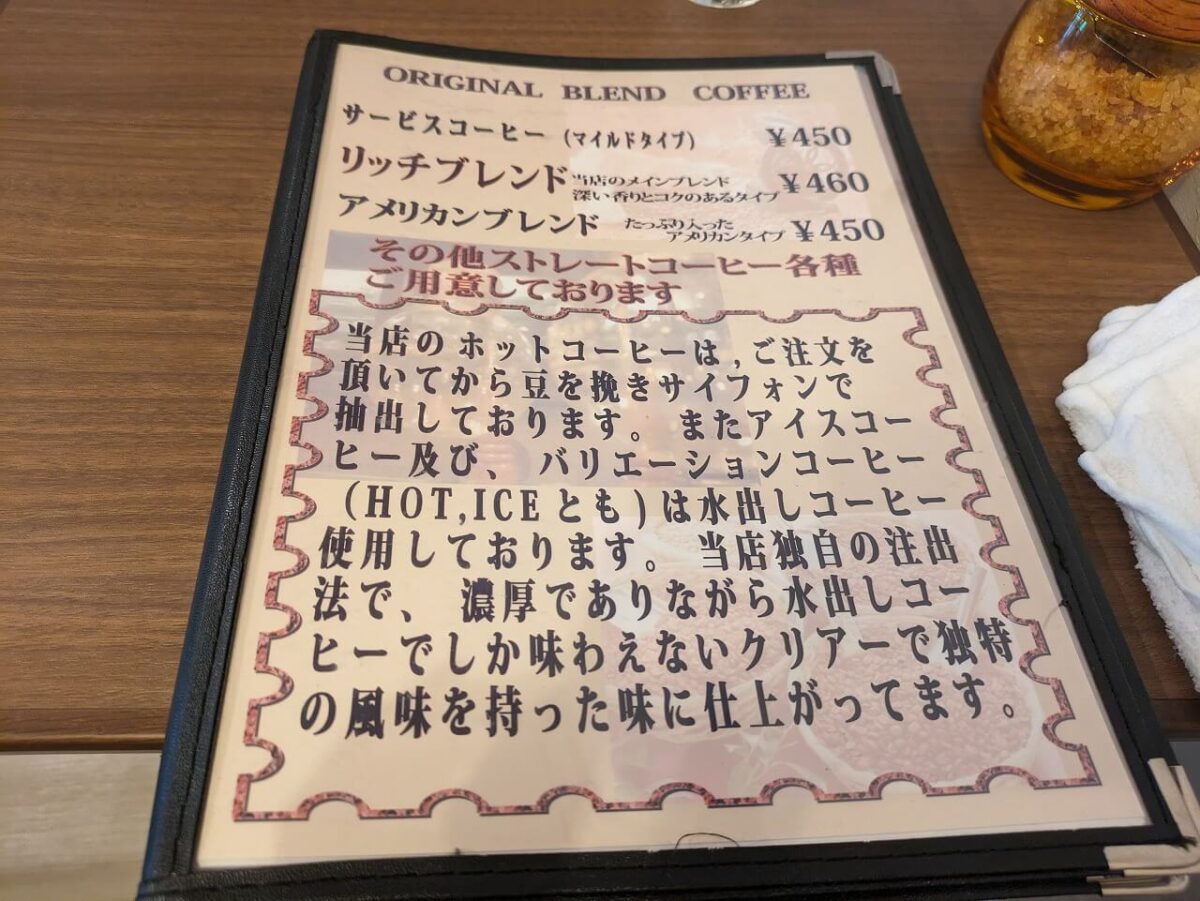 ORIGINAL BLEND COFFEE
サービスコーヒー (マイルドタイプ) ¥450
リッチブレンド 当店のメインブレンド 深い香りとコクのあるタイプ ¥460
アメリカンブレンド たっぷり入った アメリカンタイプ ¥450
その他ストレートコーヒー各種
ご用意しております
当店のホットコーヒーは,ご注文を
頂いてから豆を挽きサイフォンで
抽出しております。またアイスコー
ヒー及び、バリエーションコーヒー
(HOT,ICEとも)は水出しコーヒー
使用しております。当店独自の注出
法で、濃厚でありながら水出しコー
ヒーでしか味わえないクリアーで独特
の風味を持った味に仕上がってます。